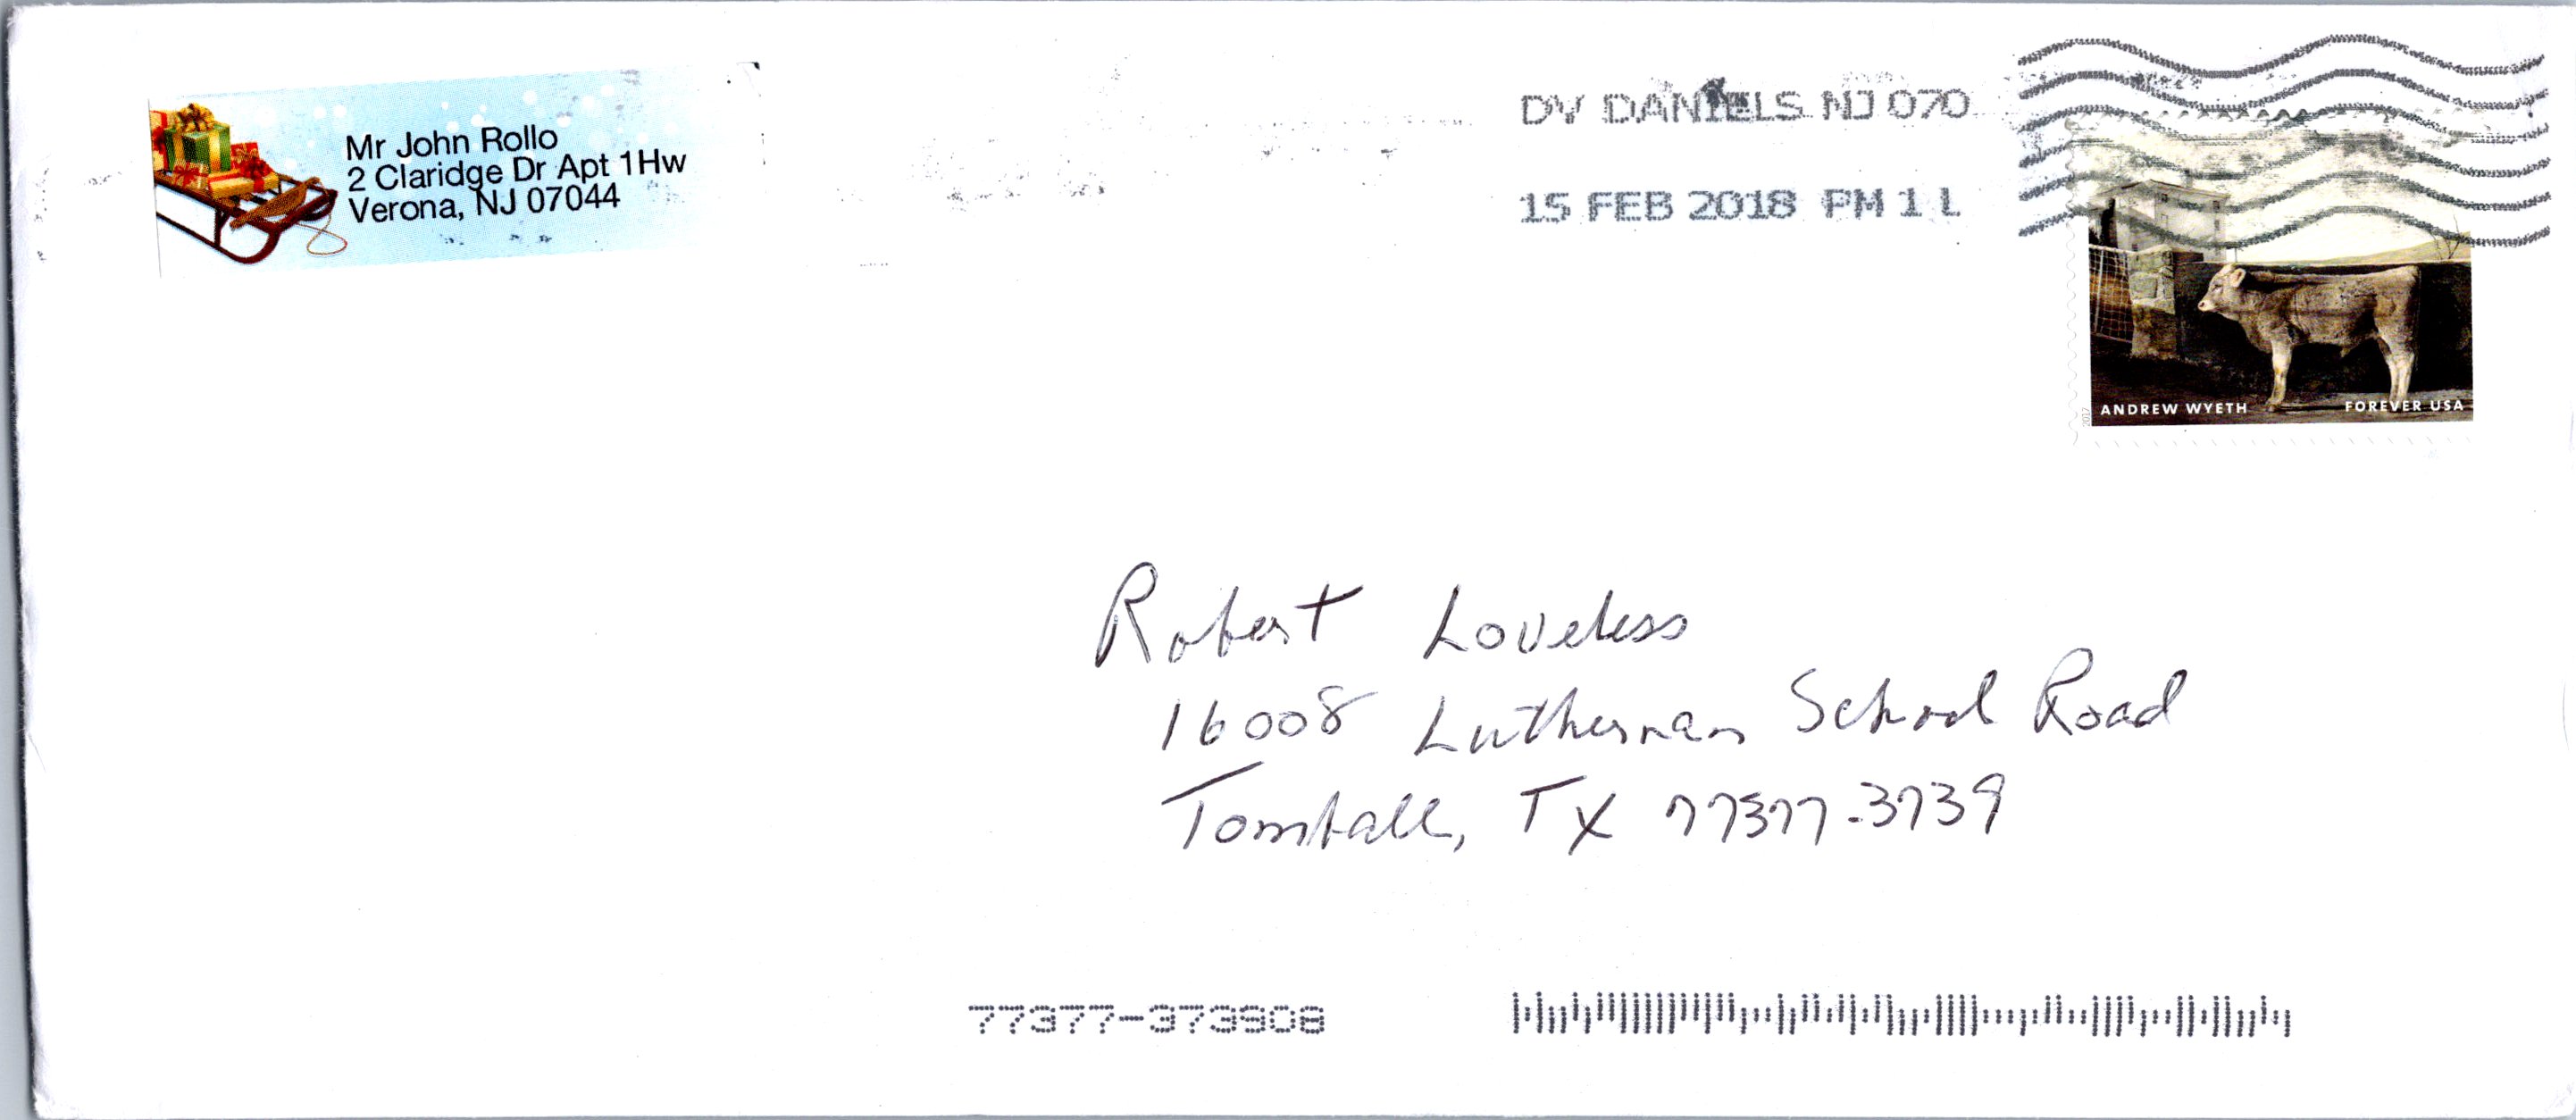 Mr John Rollo
2 Claridge Dr Apt 1Hw
Verona, NJ 07044
DV DANIELS NJ 070
15 FEB 2018 PM 1 L
ANDREW WYETH
FOREVER USA
2017
Robert Loveless
16008 Luthernan School Road
Tomball, TX 77377-3739
77377-373908